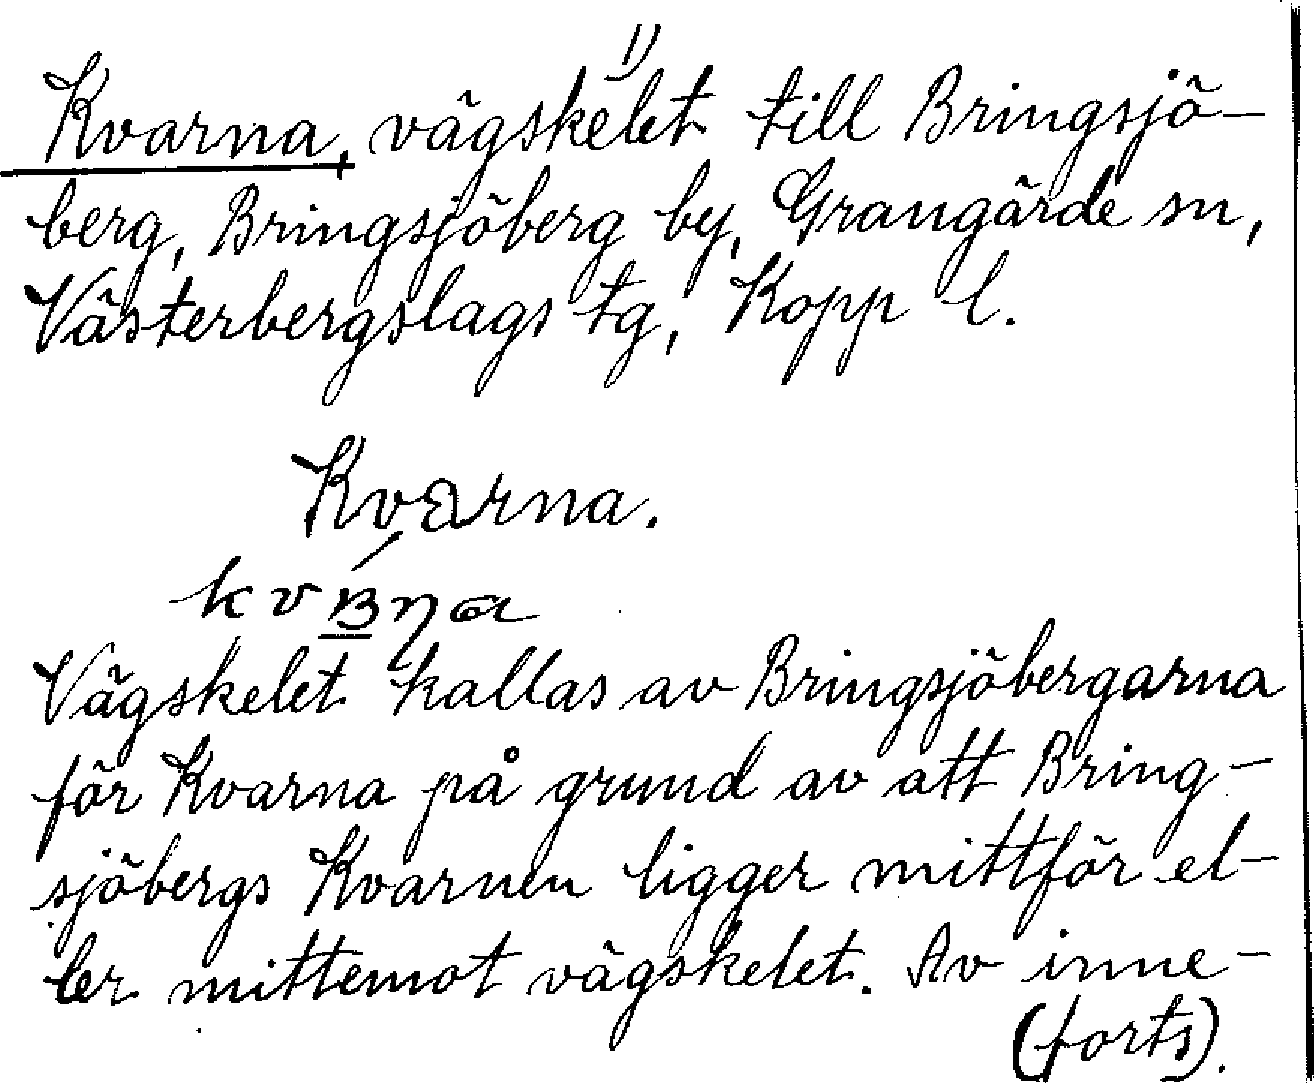 1)
Kvarna, vägskelet till Bringsjö-
berg, Bringsjöberg by, Grangärde sn,
Västerbergslags tg, Kopp l.
Kvarna.
kvʙ́ɳa
Vägskelet kallas av Bringsjöbergarna
för Kvarna på grund av att Bring-
sjöbergs Kvarnen ligger mittför el-
ler mittemot vägskelet. Av inne-
(forts).